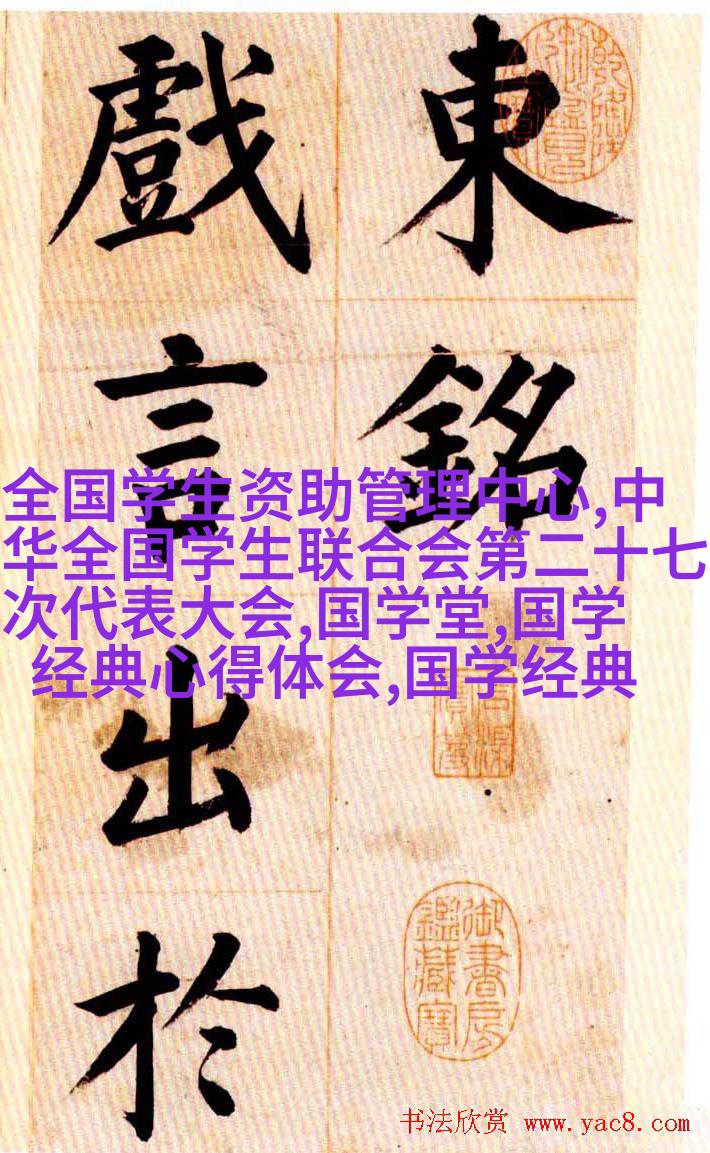 東銘
戲言出於
全国学生资助管理中心,中
华全国学生联合会第二十七
次代表大会,国学堂,国学
经典心得体会,国学经典
御書房
鑑藏寶
书法欣赏 www.yac8.com